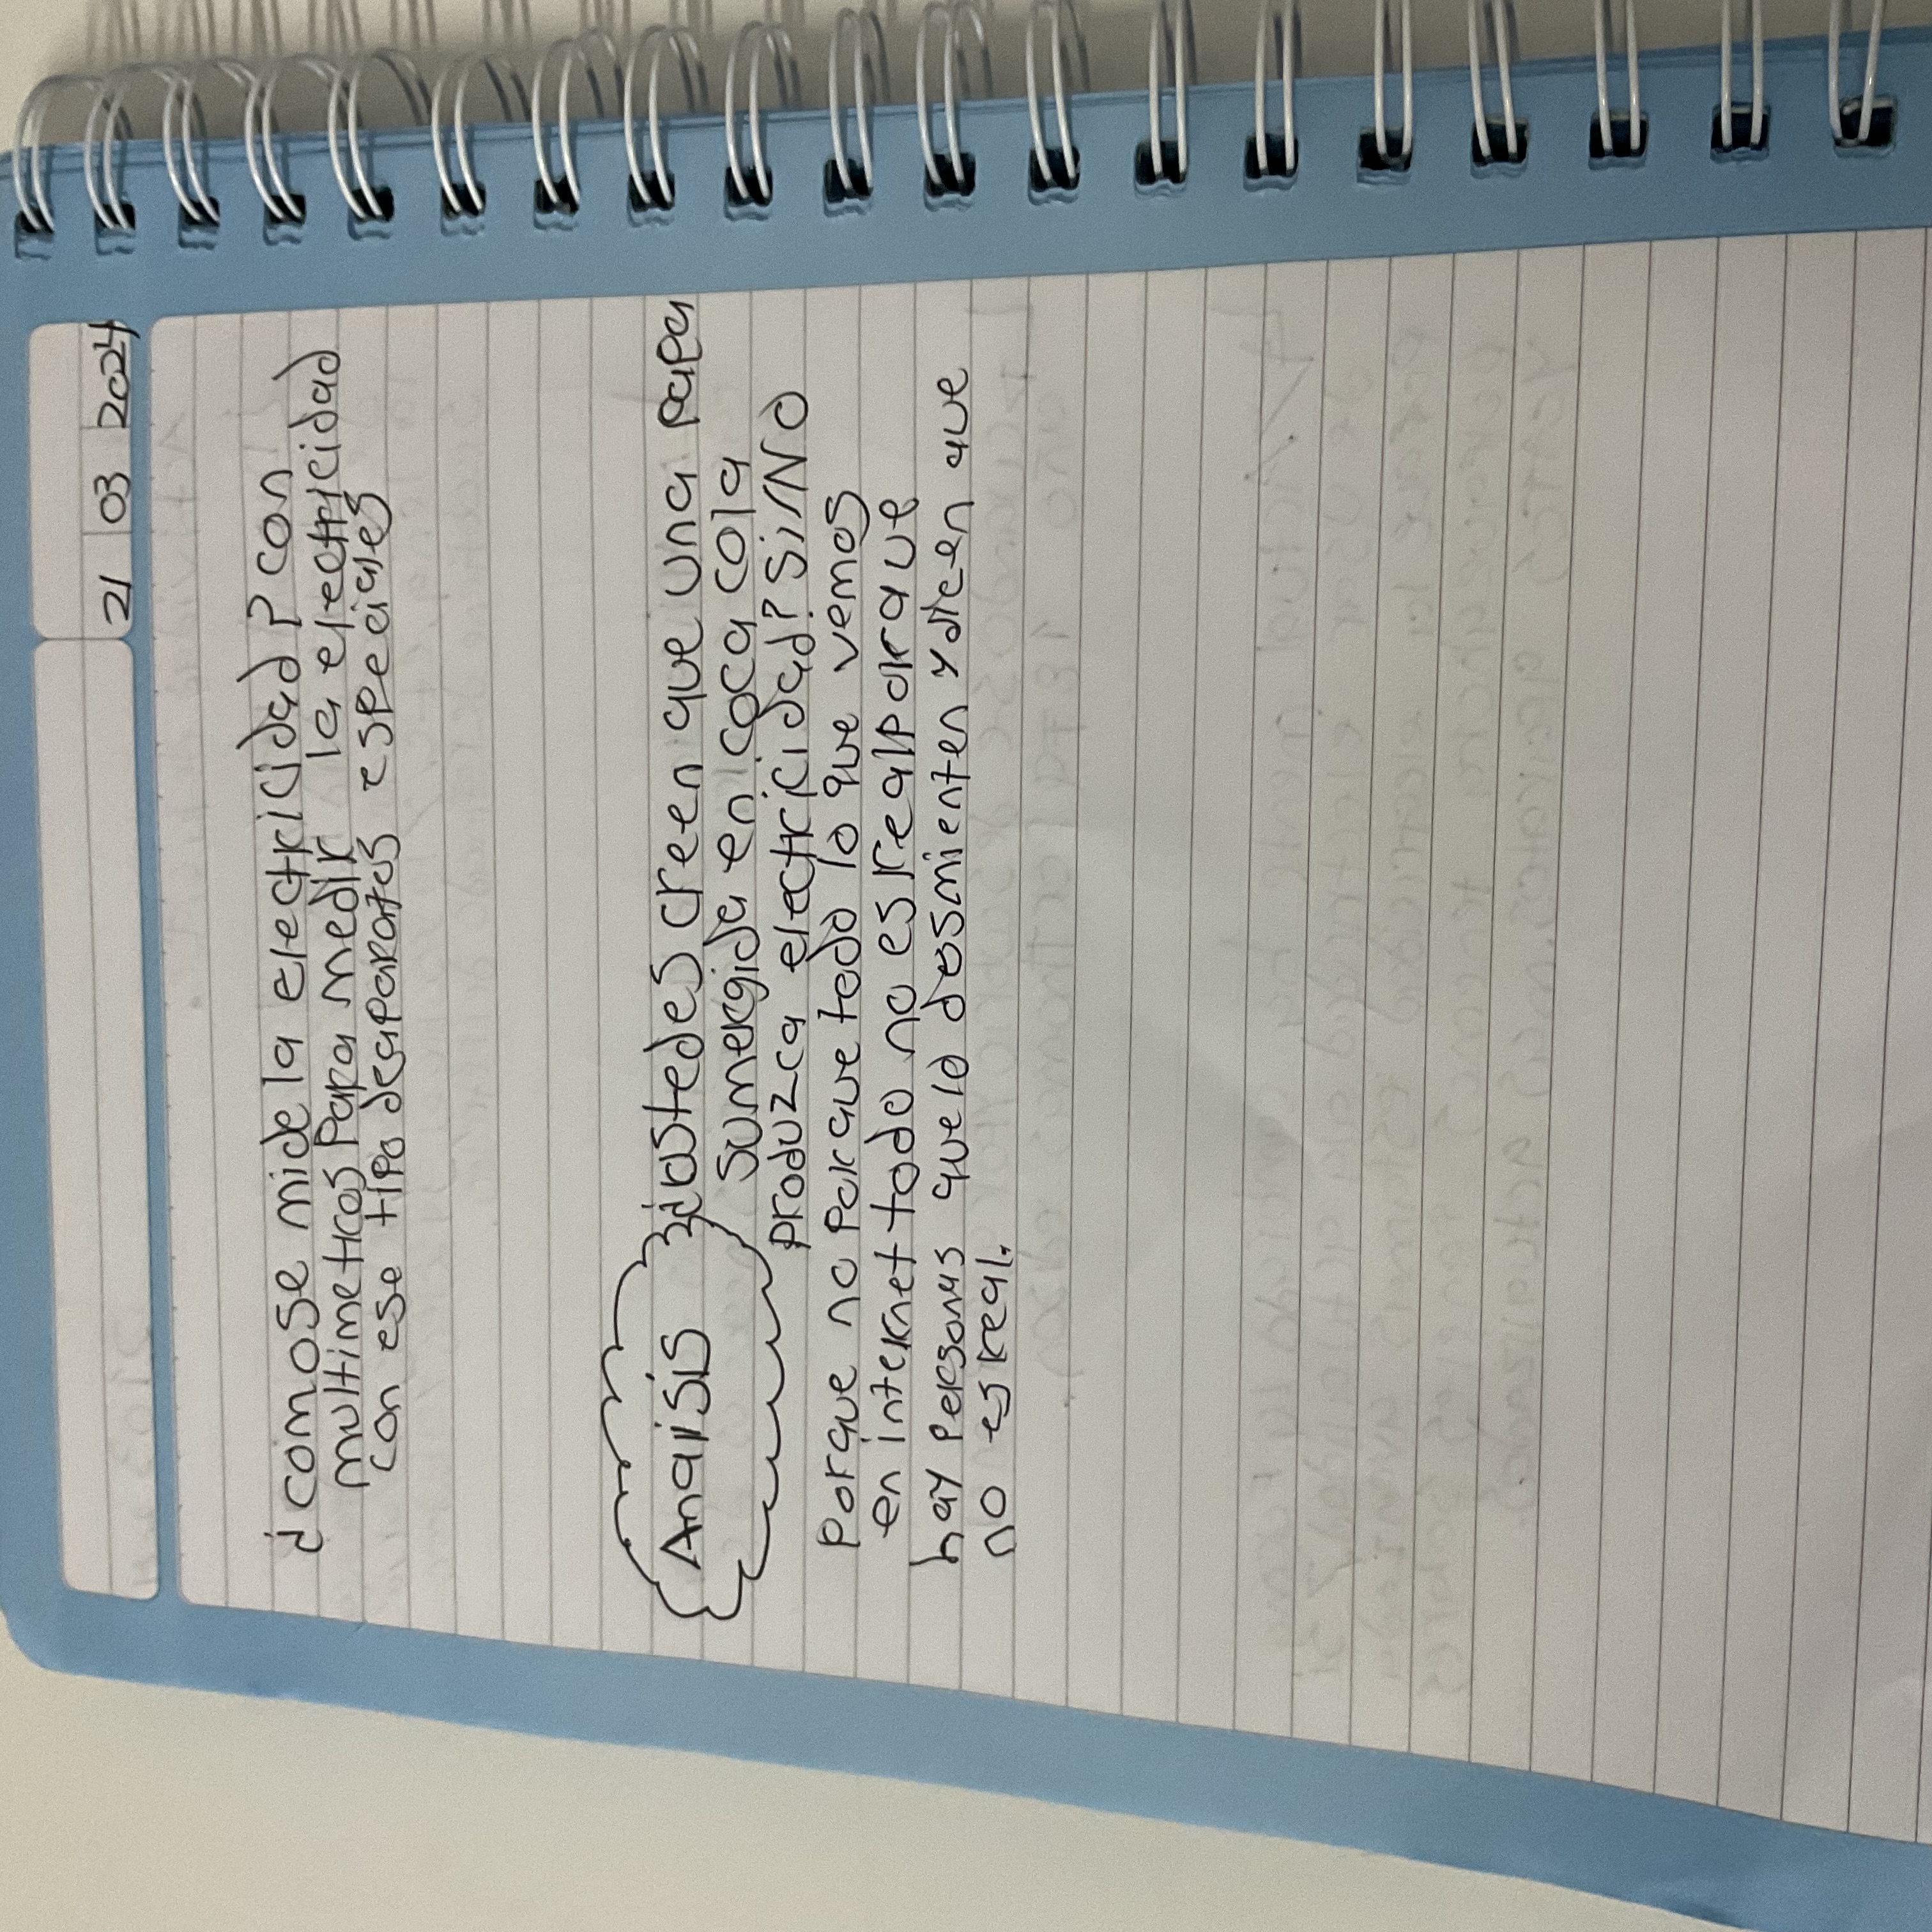 21 03 2024
¿comose mide la electricidad? con
multimetros Para medir la electricidad
con ese tipo deaparatos especiales
Analisis ¿ustedes creen que una papa
sumergida en coca cola
produzca electricidad? Si/NO
Porque no Porque todo lo que vemos
en internet todo no es real porque
hay Personas quelo desmienten y dicen que
no es real.